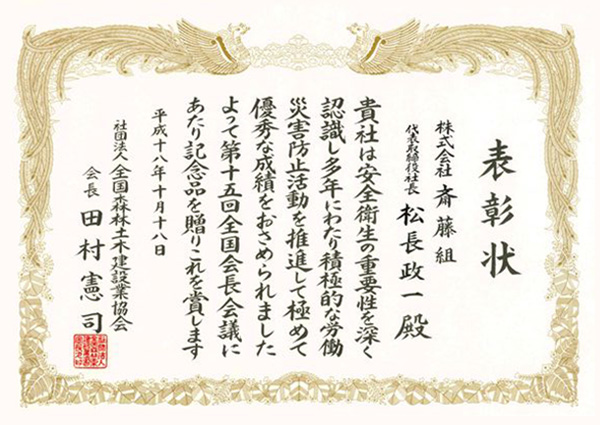 表彰状
株式会社 斎藤組
代表取締役社長 松長政一殿
貴社は安全衛生の重要性を深く
認識し多年にわたり積極的な労働
災害防止活動を推進して極めて
優秀な成績をおさめられました
よって第十五回全国会長会議に
あたり記念品を贈りこれを賞します
平成十八年十月十八日
社団法人全国森林土木建設業協会
会長 田村憲司